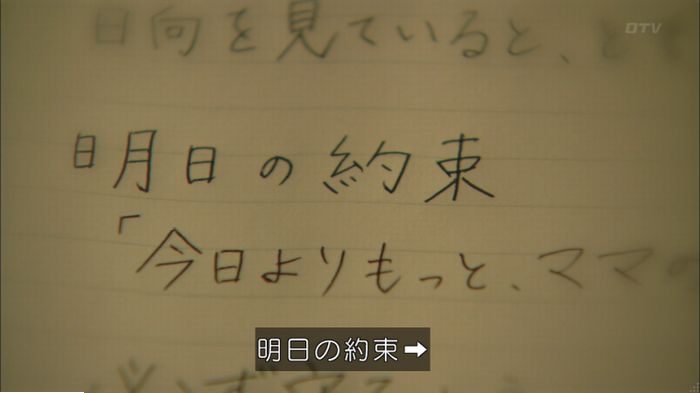 OTV
日向を見ていると、とて
明日の約束
「今日よりもっと、ママの
必ず守る
明日の約束➡